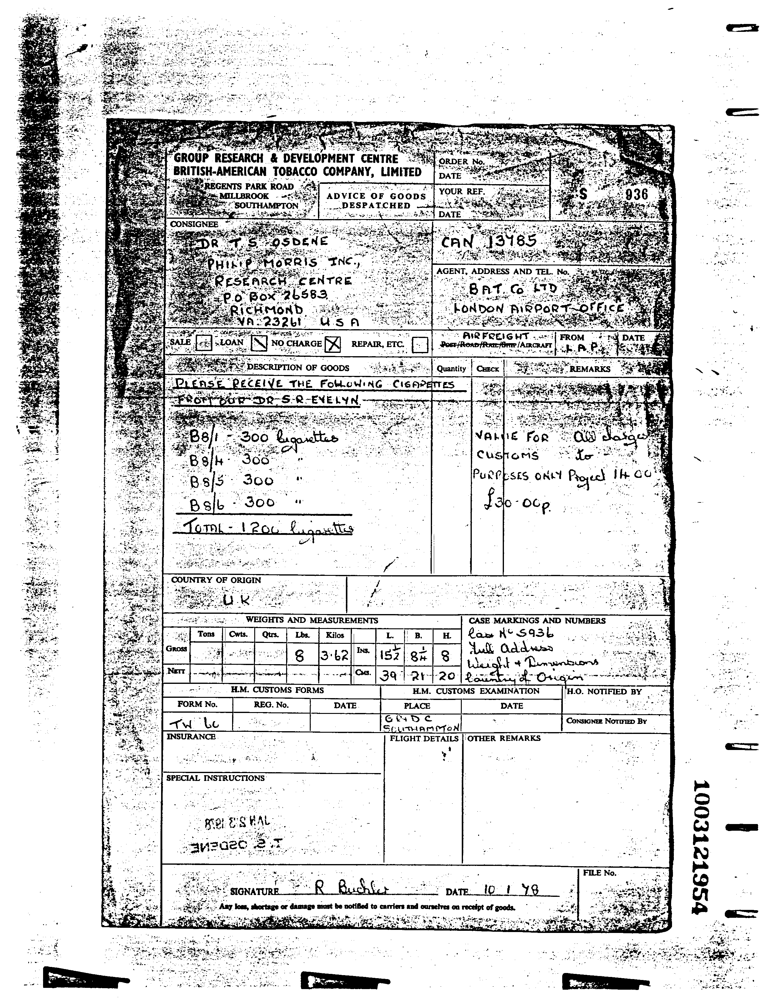 GROUP RESEARCH & DEVELOPMENT CENTRE
BRITISH-AMERICAN TOBACCO COMPANY, LIMITED
REGENTS PARK ROAD
MILLBROOK
SOUTHAMPTON
ADVICE OF GOODS
DESPATCHED
ORDER No.
DATE
YOUR REF.
DATE
S 936
CONSIGNEE
DR T. S. OSDENE
PHILIP MORRIS INC.,
RESEARCH CENTRE
P O BOX 26583
RICHMOND
VA. 23261 U S A
CAN 13785
AGENT, ADDRESS AND TEL. No.
B A T. Co LTD
LONDON AIRPORT OFFICE
SALE LOAN NO CHARGE REPAIR, ETC.
AIRFREIGHT
POST/ROAD/RAIL/SHIP/AIRCRAFT
FROM
L.A.P.
DATE
DESCRIPTION OF GOODS Quantity CHECK REMARKS
PLEASE RECEIVE THE FOLLOWING CIGARETTES
FROM OUR DR S. R. EVELYN
B8/1 - 300 Cigarettes
B8/4 - 300 "
B8/5 - 300 "
B8/6 - 300 "
TOTAL - 1200 Cigarettes
VALUE FOR
CUSTOMS
PURPOSES ONLY
£30-00p.
All charges
to
Project 1400
COUNTRY OF ORIGIN
U K
WEIGHTS AND MEASUREMENTS
Tons Cwts. Qtrs. Lbs. Kilos L. B. H.
GROSS 8 3.62 Ins. 15½ 8¼ 8
NETT Cms. 39 21 20
CASE MARKINGS AND NUMBERS
Case No S936
Full Address
Weight + Dimensions
Country of Origin
H.M. CUSTOMS FORMS
FORM No. REG. No. DATE
H.M. CUSTOMS EXAMINATION
PLACE DATE
GR&DC
SOUTHAMPTON
H.O. NOTIFIED BY
CONSIGNEE NOTIFIED BY
INSURANCE
FLIGHT DETAILS
OTHER REMARKS
SPECIAL INSTRUCTIONS
JAN 23 1978
T. S. OSDENE
FILE No.
SIGNATURE R Buchler DATE 10 1 78
Any loss, shortage or damage must be notified to carriers and ourselves on receipt of goods.
1003121954